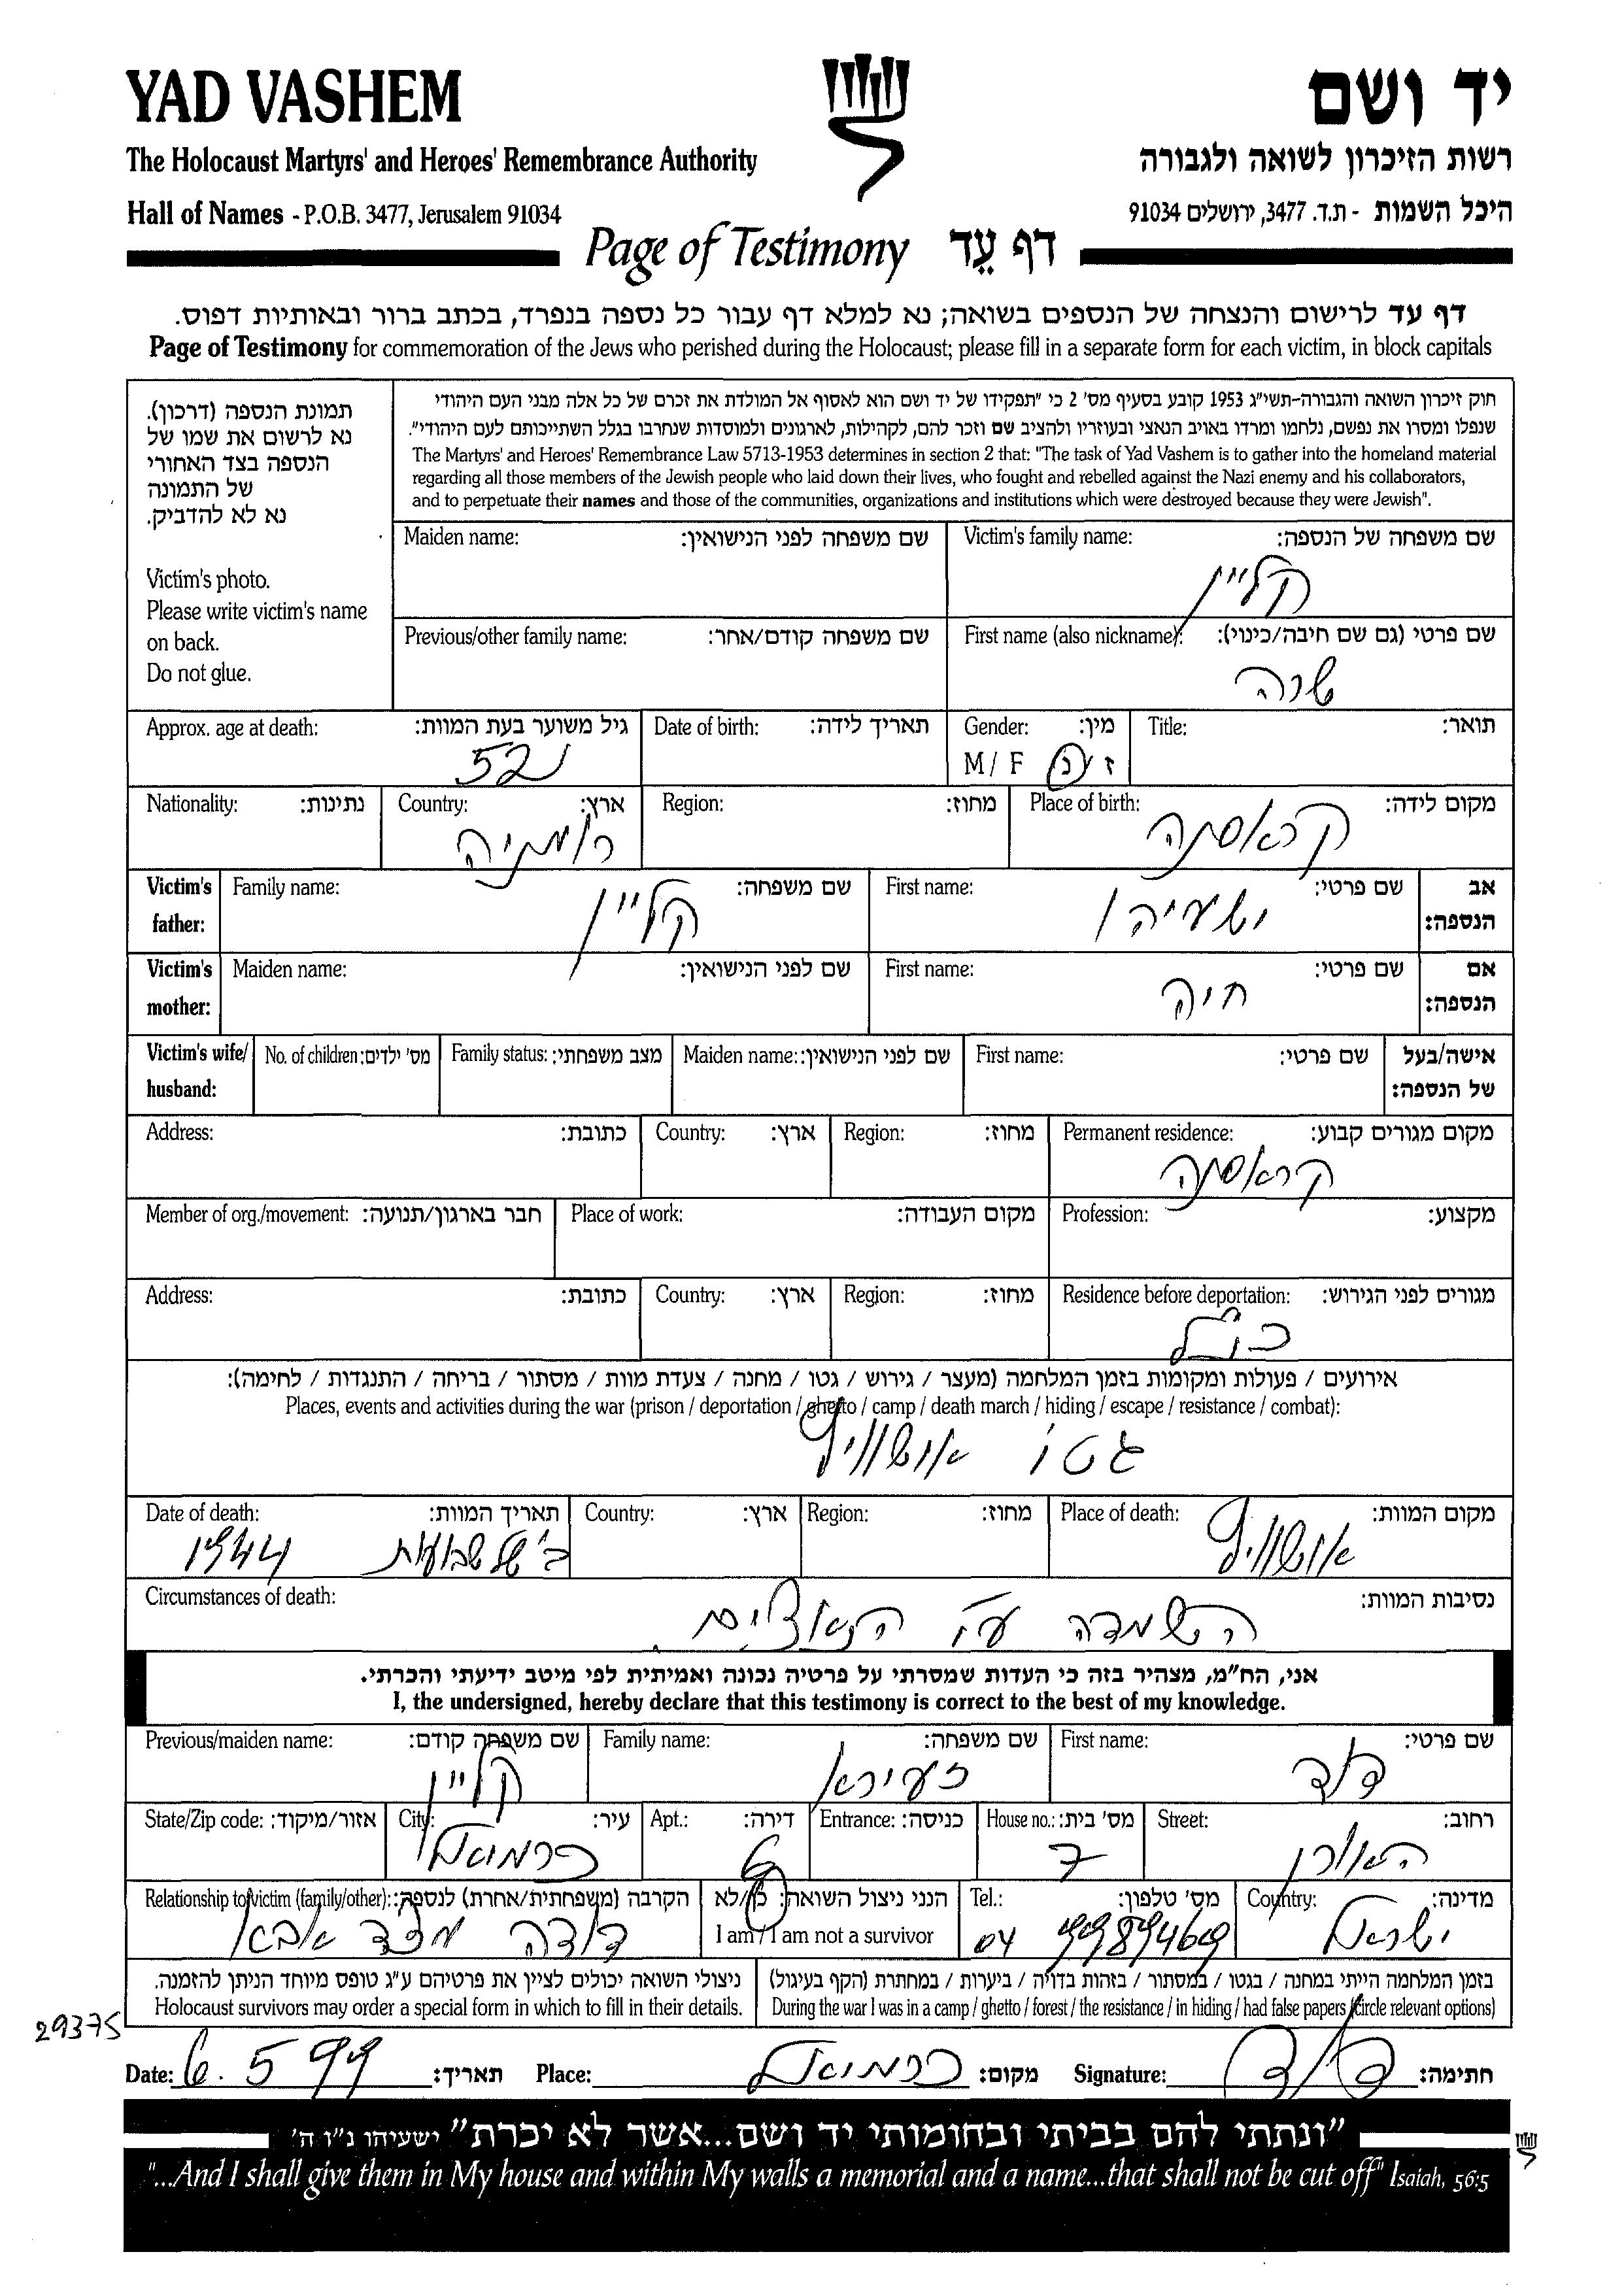 YAD VASHEM
יד ושם
The Holocaust Martyrs' and Heroes' Remembrance Authority
רשות הזיכרון לשואה ולגבורה
Hall of Names - P.O.B. 3477, Jerusalem 91034
היכל השמות - ת.ד. 3477, ירושלים 91034
Page of Testimony דף עֵד
דף עד לרישום והנצחה של הנספים בשואה; נא למלא דף עבור כל נספה בנפרד, בכתב ברור ובאותיות דפוס.
Page of Testimony for commemoration of the Jews who perished during the Holocaust; please fill in a separate form for each victim, in block capitals
תמונת הנספה (דרכון).
נא לרשום את שמו של
הנספה בצד האחורי
של התמונה
נא לא להדביק.
Victim's photo.
Please write victim's name
on back.
Do not glue.
חוק זיכרון השואה והגבורה-תשי"ג 1953 קובע בסעיף מס' 2 כי "תפקידו של יד ושם הוא לאסוף אל המולדת את זכרם של כל אלה מבני העם היהודי
שנפלו ומסרו את נפשם, נלחמו ומרדו באויב הנאצי ובעוזריו ולהציב שם וזכר להם, לקהילות, לארגונים ולמוסדות שנחרבו בגלל השתייכותם לעם היהודי".
The Martyrs' and Heroes' Remembrance Law 5713-1953 determines in section 2 that: "The task of Yad Vashem is to gather into the homeland material
regarding all those members of the Jewish people who laid down their lives, who fought and rebelled against the Nazi enemy and his collaborators,
and to perpetuate their names and those of the communities, organizations and institutions which were destroyed because they were Jewish".
Victim's family name: שם משפחה של הנספה:
קליין
Maiden name: שם משפחה לפני הנישואין:
First name (also nickname): שם פרטי (גם שם חיבה/כינוי):
שרה
Previous/other family name: שם משפחה קודם/אחר:
Title: תואר:
Gender: מין:
M / F ז / נ
Date of birth: תאריך לידה:
Approx. age at death: גיל משוער בעת המוות:
52
Place of birth: מקום לידה:
קראסנה
Region: מחוז:
Country: ארץ:
רומניה
Nationality: נתינות:
Victim's father: אב הנספה:
First name: שם פרטי:
ישעיהו
Family name: שם משפחה:
קליין
Victim's mother: אם הנספה:
First name: שם פרטי:
חיה
Maiden name: שם לפני הנישואין:
Victim's wife/ husband: אישה/בעל של הנספה:
First name: שם פרטי:
Maiden name: שם לפני הנישואין:
Family status: מצב משפחתי:
No. of children: מס' ילדים:
Permanent residence: מקום מגורים קבוע:
קראסנה
Region: מחוז:
Country: ארץ:
Address: כתובת:
Profession: מקצוע:
Place of work: מקום העבודה:
Member of org./movement: חבר בארגון/תנועה:
Residence before deportation: מגורים לפני הגירוש:
כנ"ל
Region: מחוז:
Country: ארץ:
Address: כתובת:
אירועים / פעולות ומקומות בזמן המלחמה (מעצר / גירוש / גטו / מחנה / צעדת מוות / מסתור / בריחה / התנגדות / לחימה):
Places, events and activities during the war (prison / deportation / ghetto / camp / death march / hiding / escape / resistance / combat):
גטו אושוויץ
Place of death: מקום המוות:
אושוויץ
Region: מחוז:
Country: ארץ:
Date of death: תאריך המוות:
ב' של שבועות 1944
Circumstances of death: נסיבות המוות:
השמדה ע"י הנאצים.
אני, הח"מ, מצהיר בזה כי העדות שמסרתי על פרטיה נכונה ואמיתית לפי מיטב ידיעתי והכרתי.
I, the undersigned, hereby declare that this testimony is correct to the best of my knowledge.
First name: שם פרטי:
דוד
Family name: שם משפחה:
זעירא
Previous/maiden name: שם משפחה קודם:
קליין
Street: רחוב:
האורן
House no.: מס' בית:
7
Entrance: כניסה:
Apt.: דירה:
6
City: עיר:
כרמיאל
State/Zip code: אזור/מיקוד:
Country: מדינה:
ישראל
Tel.: מס' טלפון:
04 9989469
הנני ניצול השואה: כן/לא
I am / I am not a survivor
Relationship to victim (family/other): הקרבה (משפחתית/אחרת) לנספה:
דודה מצד אבא
בזמן המלחמה הייתי במחנה / בגטו / במסתור / בזהות בדויה / ביערות / במחתרת (הקף בעיגול)
During the war I was in a camp / ghetto / forest / the resistance / in hiding / had false papers (circle relevant options)
ניצולי השואה יכולים לציין את פרטיהם ע"ג טופס מיוחד הניתן להזמנה.
Holocaust survivors may order a special form in which to fill in their details.
29375
Date: 6.5 99 תאריך: Place: כרמיאל מקום: Signature: דוד חתימה:
"ונתתי להם בביתי ובחומותי יד ושם...אשר לא יכרת" ישעיהו נ"ו ה'
"...And I shall give them in My house and within My walls a memorial and a name...that shall not be cut off" Isaiah, 56:5